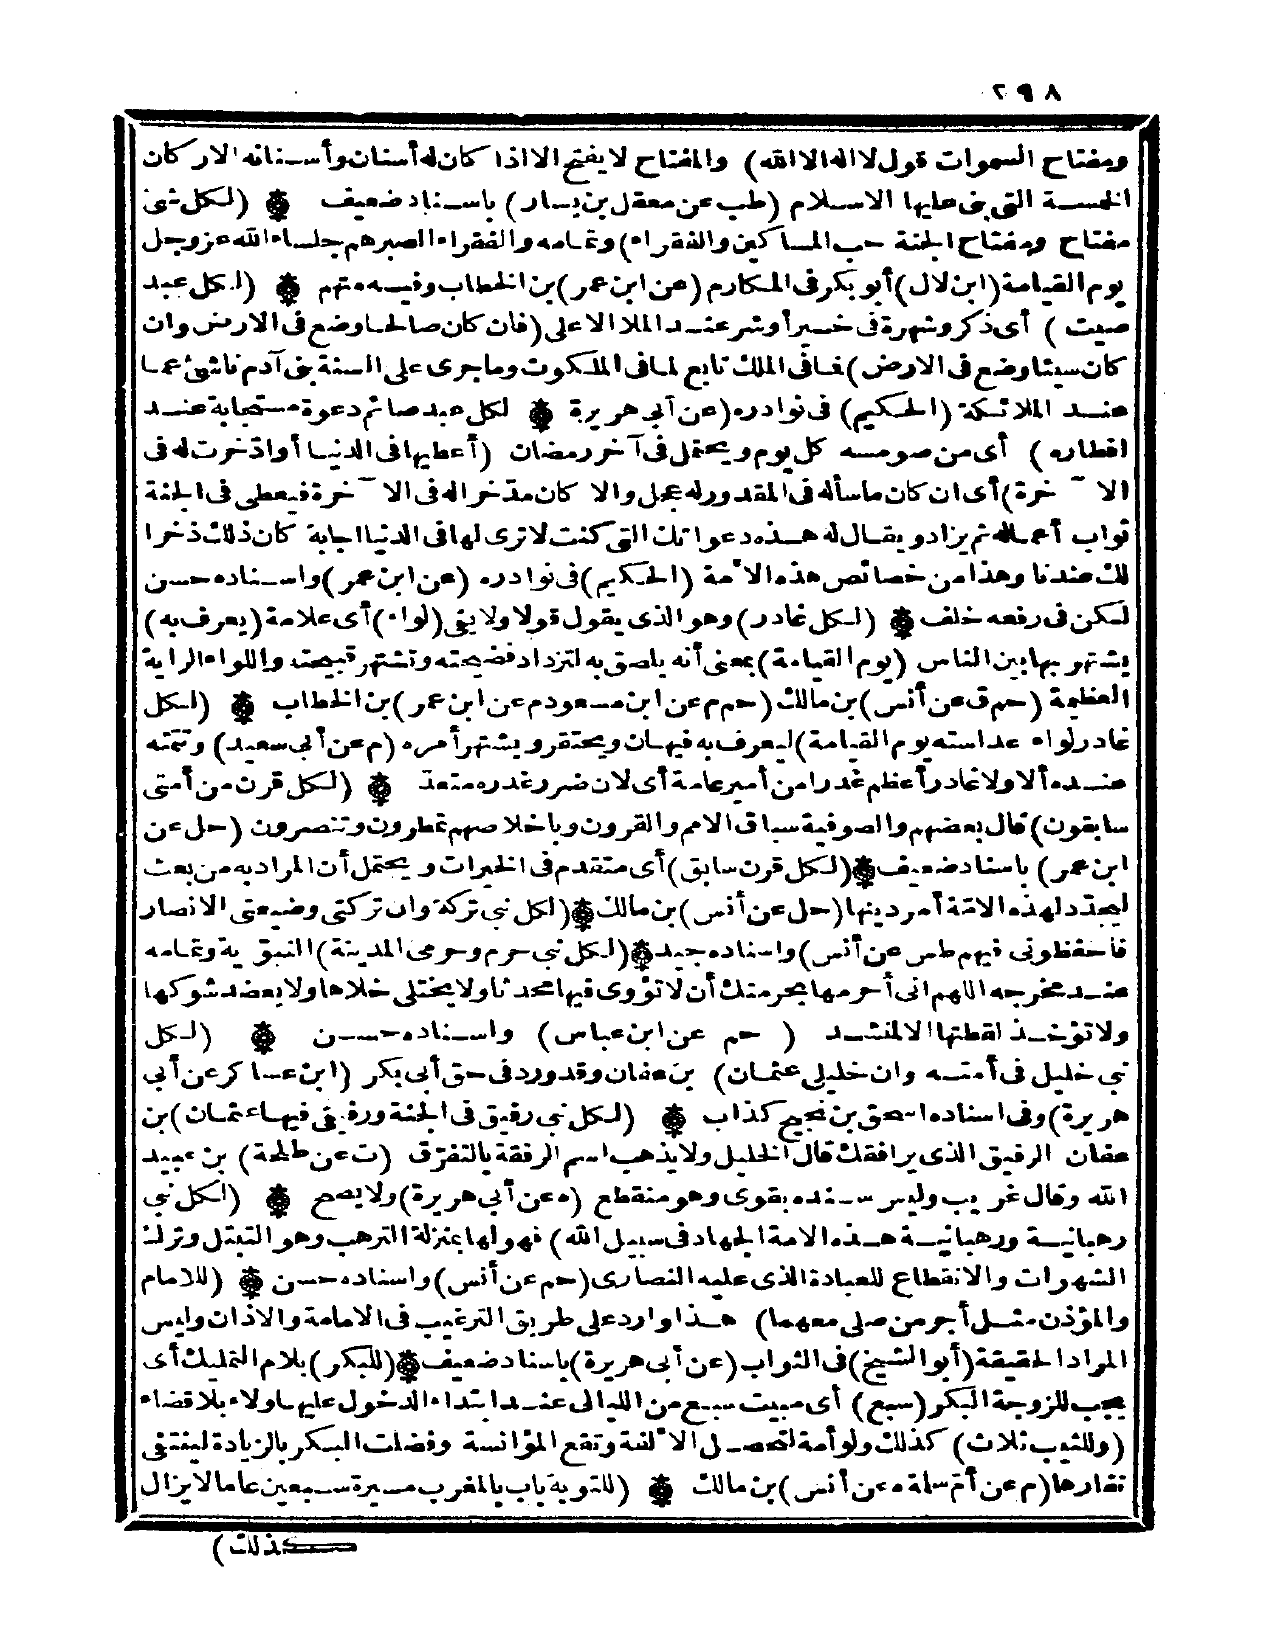 ٢٩٨
ومفتاح السموات قول لا اله الا الله) والمفتاح لا يفتح الا اذا كان له أسنان وأسنانه الاركان
الخمسة التي بنى عليها الاسلام (طب عن معقل بن يسار) باسناد ضعيف ❁ (لكل شئ
مفتاح ومفتاح الجنة حب المساكين والفقراء) وتمامه والفقراء الصبر هم جلساء الله عز وجل
يوم القيامة (ابن لال) أبو بكر فى المكارم (عن ابن عمر) بن الخطاب وفيه متهم ❁ (لكل عبد
صيت) أى ذكر وشهرة فى خير أو شر عند الملا الاعلى (فان كان صالحا وضع فى الارض وان
كان سيئا وضع فى الارض) فما فى الملك تابع لما فى الملكوت وما جرى على السنة بنى آدم ناشئ عما
عند الملائكة (الحكيم) فى نوادره (عن أبى هريرة ❁ لكل عبد صائم دعوة مستجابة عند
افطاره) أى من صومه كل يوم ويحتمل فى آخر رمضان (أعطيها فى الدنيا أو ادّخرت له فى
الآخرة) أى ان كان ما سأله فى المقدور له عجل والا كان مدّخرا له فى الآخرة فيعطى فى الجنة
ثواب أعماله ثم يزاد ويقال له هذه دعواتك التى كنت لا ترى لها فى الدنيا اجابة كان ذلك ذخرا
لك عندنا وهذا من خصائص هذه الامة (الحكيم) فى نوادره (عن ابن عمر) واسناده حسن
لكن فى رفعه خلف ❁ (لكل غادر) وهو الذى يقول قولا ولا يفى (لواء) أى علامة (يعرف به)
يشتهر بها بين الناس (يوم القيامة) بمعنى أنه يلصق به لتزداد فضيحته وتشتهر قبيحته واللواء الراية
العظيمة (حم ق عن أنس) بن مالك (حم م عن ابن مسعود م عن ابن عمر) بن الخطاب ❁ (لكل
غادر لواء عند استه يوم القيامة) ليعرف به فيهان ويحتقر ويشتهر أمره (م عن أبى سعيد) وتتمته
عنده ألا ولا غادر أعظم غدرا من أمير عامة أى لان ضرر غدره متعد ❁ (لكل قرن من أمتى
سابقون) قال بعضهم والصوفية سباق الامم والقرون وباخلاصهم تمطرون وتنصرون (حل عن
ابن عمر) باسناد ضعيف ❁ (لكل قرن سابق) أى متقدم فى الخيرات ويحتمل أن المراد به من بعث
ليجدد لهذه الامّة أمر دينها (حل عن أنس) بن مالك ❁ (لكل نبى تركة وان تركتى وضيعتى الانصار
فاحفظونى فيهم طس عن أنس) واسناده جيد ❁ (لكل نبى حرم وحرمى المدينة) النبوّية وتمامه
عند مخرجه اللهم انى أحرمها بحرمتك أن لا تؤوى فيها محدثا ولا يختلى خلاها ولا يعضد شوكها
ولا تؤخذ لقطتها الا لمنشد (حم عن ابن عباس) واسناده حسن ❁ (لكل
نبى خليل فى أمته وان خليلى عثمان) بن عفان وقد ورد فى حق أبى بكر (ابن عساكر عن أبى
هريرة) وفى اسناده اسحق بن نجيح كذاب ❁ (لكل نبى رفيق فى الجنة ورفيقى فيها عثمان) بن
عفان الرفيق الذى يرافقك قال الخليل ولا يذهب اسم الرفقة بالتفرّق (ت عن طلحة) بن عبيد
الله وقال غريب وليس سنده بقوى وهو منقطع (ه عن أبى هريرة) ولا يصح ❁ (لكل نبى
رهبانية ورهبانية هذه الامة الجهاد فى سبيل الله) فهو لها بمنزلة الترهب وهو التبتل وترك
الشهوات والانقطاع للعبادة الذى عليه النصارى (حم عن أنس) واسناده حسن ❁ (للامام
والمؤذن مثل أجر من صلى معهما) هذا وارد على طريق الترغيب فى الامامة والاذان وليس
المراد الحقيقة (أبو الشيخ) فى الثواب (عن أبى هريرة) باسناد ضعيف ❁ (للبكر) بلام التمليك أى
يجب للزوجة البكر (سبع) أى مبيت سبع من الليالى عند ابتداء الدخول عليها ولاء بلا قضاء
(وللثيب ثلاث) كذلك ولو أمة لتحصل الالفة وتقع المؤانسة وفضلت البكر بالزيادة لينتفى
نفارها (م عن أم سلمة ه عن أنس) بن مالك ❁ (للتوبة باب بالمغرب مسيرة سبعين عاما لا يزال
كذلك)